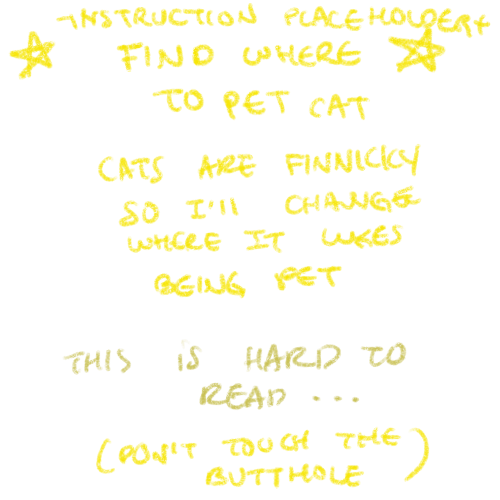 INSTRUCTION PLACEHOLDER
FIND WHERE
TO PET CAT
CATS ARE FINNICKY
SO I'll CHANGE
WHERE IT LIKES
BEING PET
THIS IS HARD TO
READ ...
(DON'T TOUCH THE
BUTTHOLE)